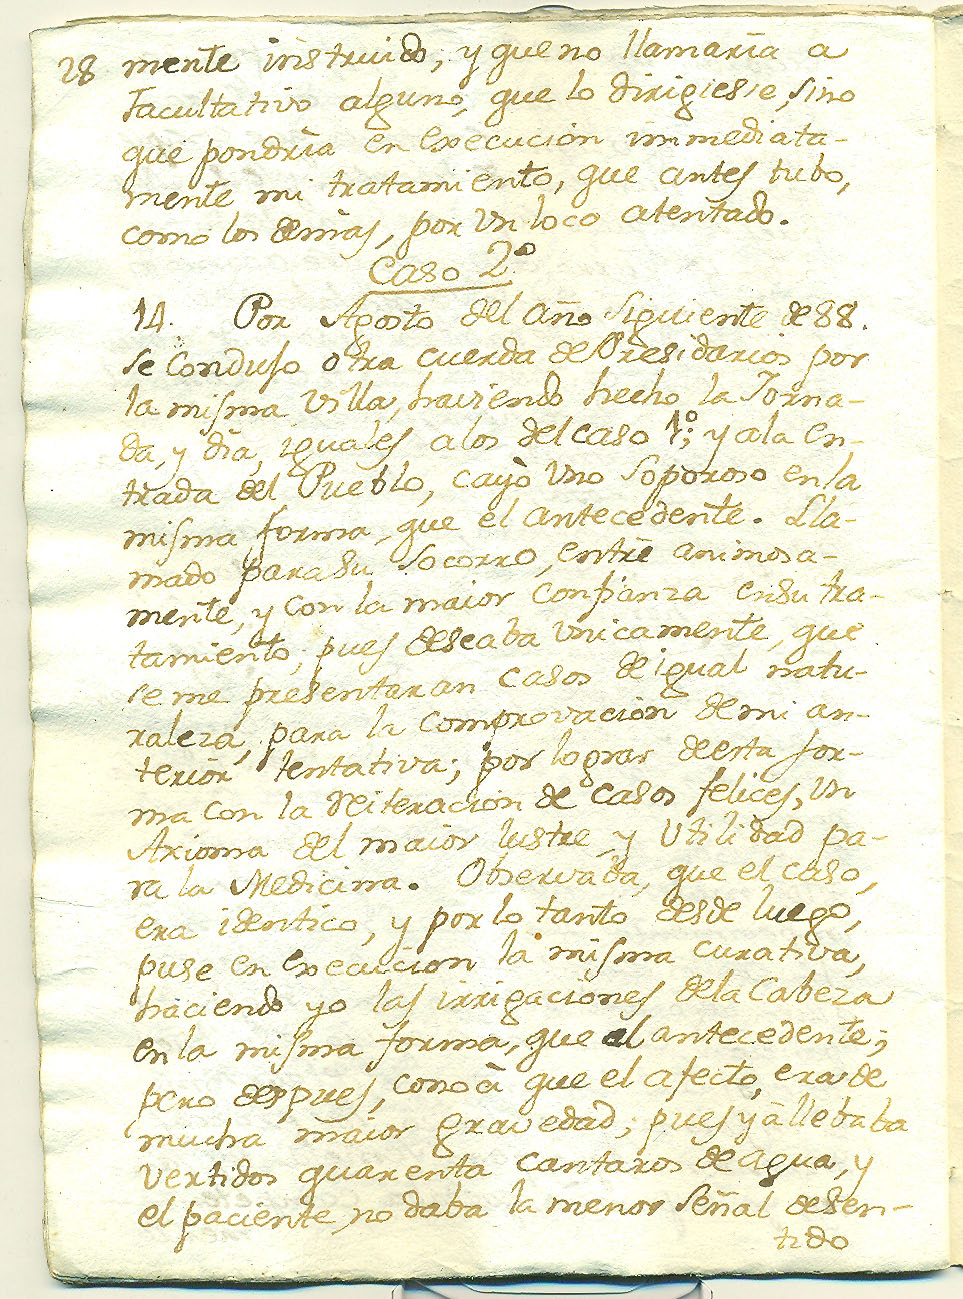 28 mente instruido, y que no llamaria a
Facultativo alguno, que lo dirigiesse, sino
que pondria en execucion immediata-
mente mi tratamiento, que antes tubo,
como los demas, por un loco atentado.
Caso 2º
14. Por Agosto del año siguiente de 88.
se condujo otra cuerda de Presidarios por
la misma Villa, haviendo hecho la Jorna-
da, y dia, iguales a los del caso 1º; y a la en-
trada del Pueblo, cayò uno soporoso en la
misma forma, que el antecedente. Lla-
mado para su socorro, entrè animosa-
mente, y con la maior confianza en su tra-
tamiento, pues deseaba unicamente, que
se me presentaran casos de igual natu-
raleza, para la comprovacion de mi an-
terior tentativa; por lograr de esta for-
ma con la reiteracion de casos felices, un
Axioma del maior lustre, y utilidad pa-
ra la Medicina. Observada, que el caso,
era identico, y por lo tanto desde luego,
puse en execucion la misma curativa,
haciendo yo las irrigaciones de la Cabeza
en la misma forma, que al antecedente;
pero despues, conocì que el afecto, era de
mucha maior gravedad; pues yà llebaba
vertidos quarenta cantaros de agua, y
el paciente, no daba la menor señal de sen-
tido